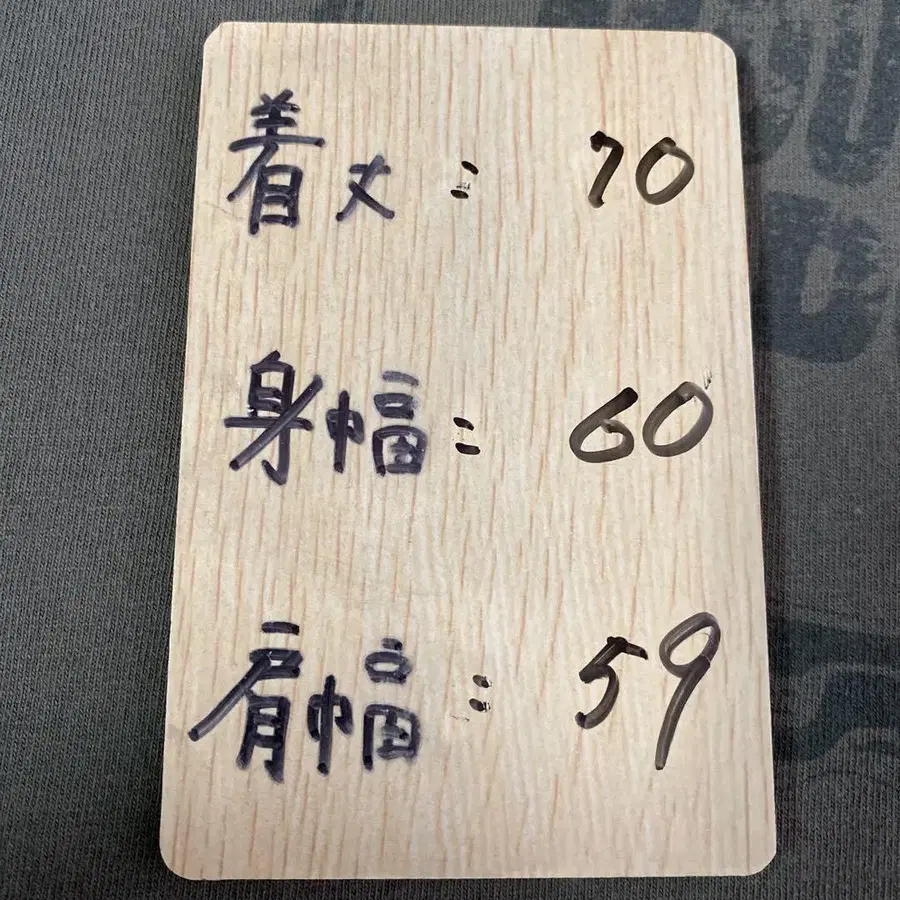 着丈: 70
身幅: 60
肩幅: 59